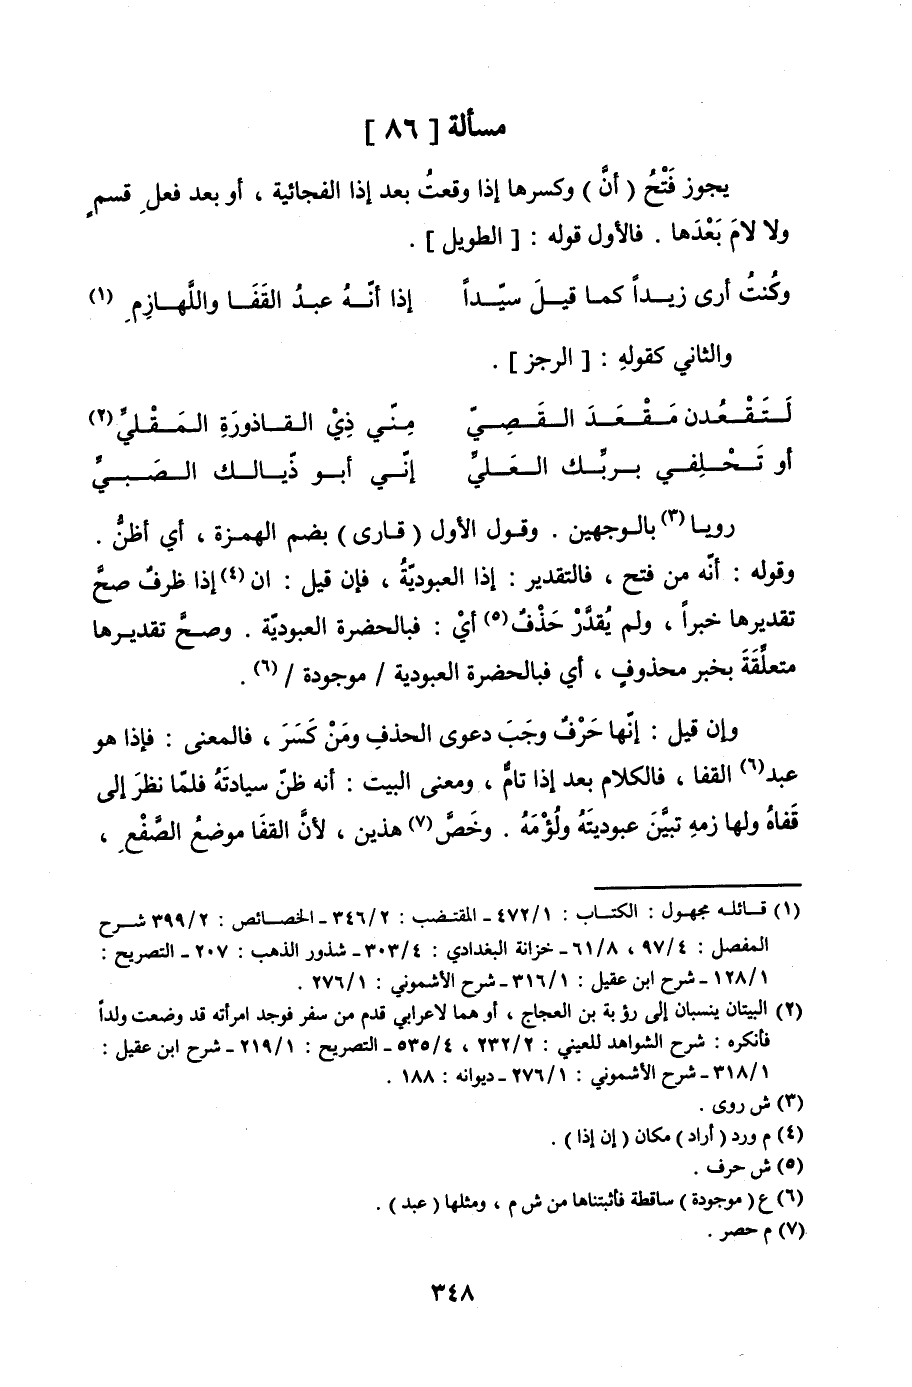 مسألة [ ٨٦ ]
يجوز فَتْحُ ( أنَّ ) وكسرها إذا وقعتُ بعد إذا الفجائية ، أو بعد فعلِ قسمٍ
ولا لامَ بَعْدَها . فالأول قوله : [ الطويل ] .
وكُنتُ أرى زيـداً كمـا قيـلَ سيّـداً إذا أنّـهُ عبـدُ القَفَـا واللَّهـازِمِ (١)
والثاني كقولهِ : [ الرجز ] .
لَـتَـقْـعُـدن مَـقْـعَـدَ الـقَـصِـيّ مِـنّـي ذِيْ الـقـاذورَةِ الـمَـقْـلـيِّ (٢)
أو تَـحْـلِفـي بـربِّـك العَـلـيِّ إنّـي أبـو ذّيـالـك الـصَـبـيِّ
رويـا (٣) بالـوجهين . وقـول الأول ( قـارى ) بضم الهمـزة ، أي أظنُّ .
وقوله : أنّه من فتح ، فالتقدير : إذا العبوديّةُ ، فإن قيل : ان (٤) إذا ظرفٌ صحَّ
تقديرها خبراً ، ولم يُقدَّرْ حَذْفٌ (٥) أيْ : فبالحضرة العبوديّة . وصـحَّ تقديـرها
متعلَّقَةَ بخبر محذوفٍ ، أي فبالحضرة العبودية / موجودة / (٦) .
وإن قيل : إنّها حَرْفٌ وجَبَ دعوى الحذفِ ومَنْ كَسَرَ ، فالمعنى : فإذا هو
عبد (٦) القفا ، فالكلام بعد إذا تامٌّ ، ومعنى البيت : أنه ظنّ سيادتَهُ فلمّا نظرَ إلى
قَفاهُ ولها زمهِ تبيَّنَ عبوديتهُ ولُؤْمَهُ . وخَصَّ (٧) هذين ، لأنَّ القفَا موضعُ الصَّفْعِ ،
(١) قـائلـه مجهـول : الكتـاب : ٤٧٢/١ ـ المقتـضب : ٣٤٦/٢ ـ الخصـائص : ٣٩٩/٢ شـرح
المفصل : ٩٧/٤ ، ٦١/٨ ـ خزانة البغدادي : ٣٠٣/٤ ـ شذور الذهب : ٢٠٧ ـ التصريح :
١٢٨/١ ـ شرح ابن عقيل : ٣١٦/١ ـ شرح الأشموني : ٢٧٦/١ .
(٢) البيتان ينسبان إلى رؤبة بن العجاج ، أو هما لاعرابي قدم من سفر فوجد امرأته قد وضعت ولداً
فأنكره : شرح الشواهد للعيني : ٢٣٢/٢ ، ٥٣٥/٤ ـ التصريح : ٢١٩/١ ـ شرح ابن عقيل :
٣١٨/١ ـ شرح الأشموني : ٢٧٦/١ ـ ديوانه : ١٨٨ .
(٣) ش روى .
(٤) م ورد ( أراد ) مكان ( إن إذا ) .
(٥) ش حرف .
(٦) ع ( موجودة ) ساقطة فأثبتناها من ش م ، ومثلها ( عبد ) .
(٧) م حصر .
٣٤٨